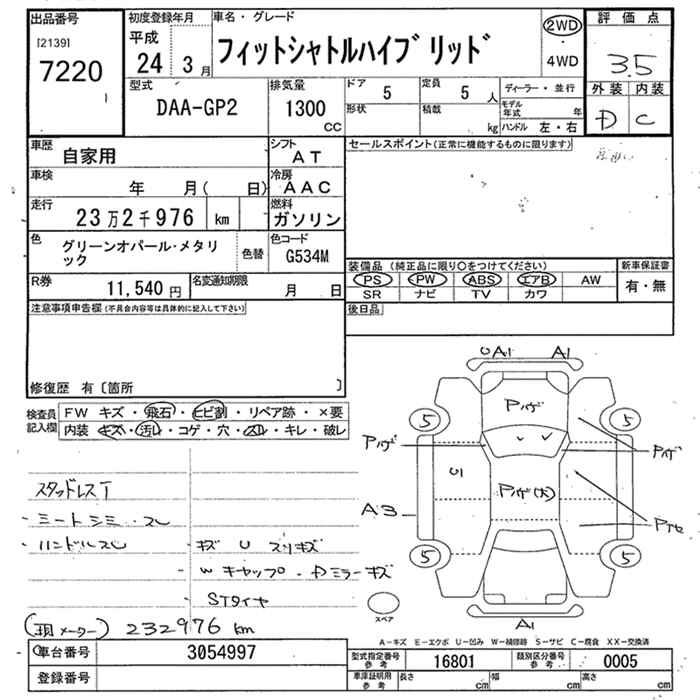 出品番号
[2139]
7220
初度登録年月
平成
24 3月
車名・グレード
フィットシャトルハイブリッド
2WD
・
4WD
評価点
3.5
外装 内装
D C
型式
DAA-GP2
排気量
1300
CC
ドア 5
形状
定員 5 人
積載 kg
ディーラー・並行
モデル年式 年
ハンドル 左・右
車歴 自家用
シフト AT
車検 年 月( 日)
冷房 AAC
走行 23万2千976 km
燃料 ガソリン
色 グリーンオパール・メタリック
色替
色コード G534M
R券 11,540円
名変通知期限 月 日
セールスポイント(正常に機能するものに限ります)
装備品 (純正品に限り○をつけてください)
PS PW ABS エアB AW
SR ナビ TV カワ
新車保証書
有・無
後日品
注意事項申告欄(不具合内容等は具体的に記入して下さい)
修復歴 有〔箇所 〕
検査員記入欄
FW キズ・飛石・ヒビ割・リペア跡・×要
内装 キズ・汚レ・コゲ・穴・スレ・キレ・破レ
スタッドレスT
・シートシミ・スレ
・ハンドルスレ
キズ U スリキズ
W キャップ・Dミラーキズ
STタイヤ
(現メーター) 232976 km
UA1 A1
Pハゲ
5 5
Pハゲ
Pハゲ
U1
Pハゲ(大)
A3
5 5
A1
スペア
A-キズ E-エクボ U-凹み W-補修跡 S-サビ C-腐食 XX-交換済
車台番号 3054997
登録番号
型式指定番号 参考 16801
類別区分番号 参考 0005
車庫証明用 参考
長さ cm
幅 cm
高さ cm